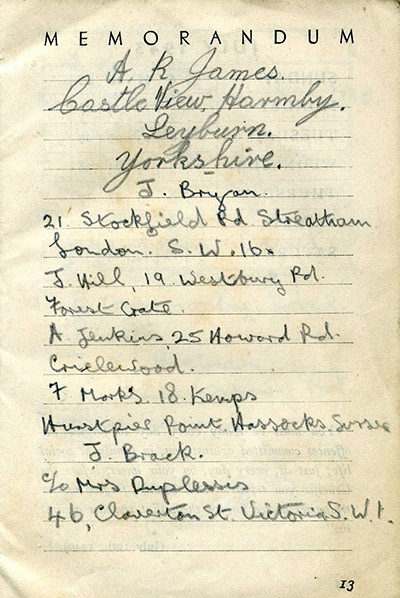 MEMORANDUM
A. R. James.
Castle View, Harmby.
Leyburn.
Yorkshire.
J. Bryan.
21. Stockfield Rd Streatham
London. S.W.16.
J. Hill, 19 Westbury Rd.
Forest Gate.
A. Jenkins, 25 Howard Rd.
Criclewood.
F. Marks. 18. Kemps
Hurstpier Point Hassocks Sussex
J. Brack.
c/o Mrs Duplessis
46, Claverton St. Victoria S.W.1.
13